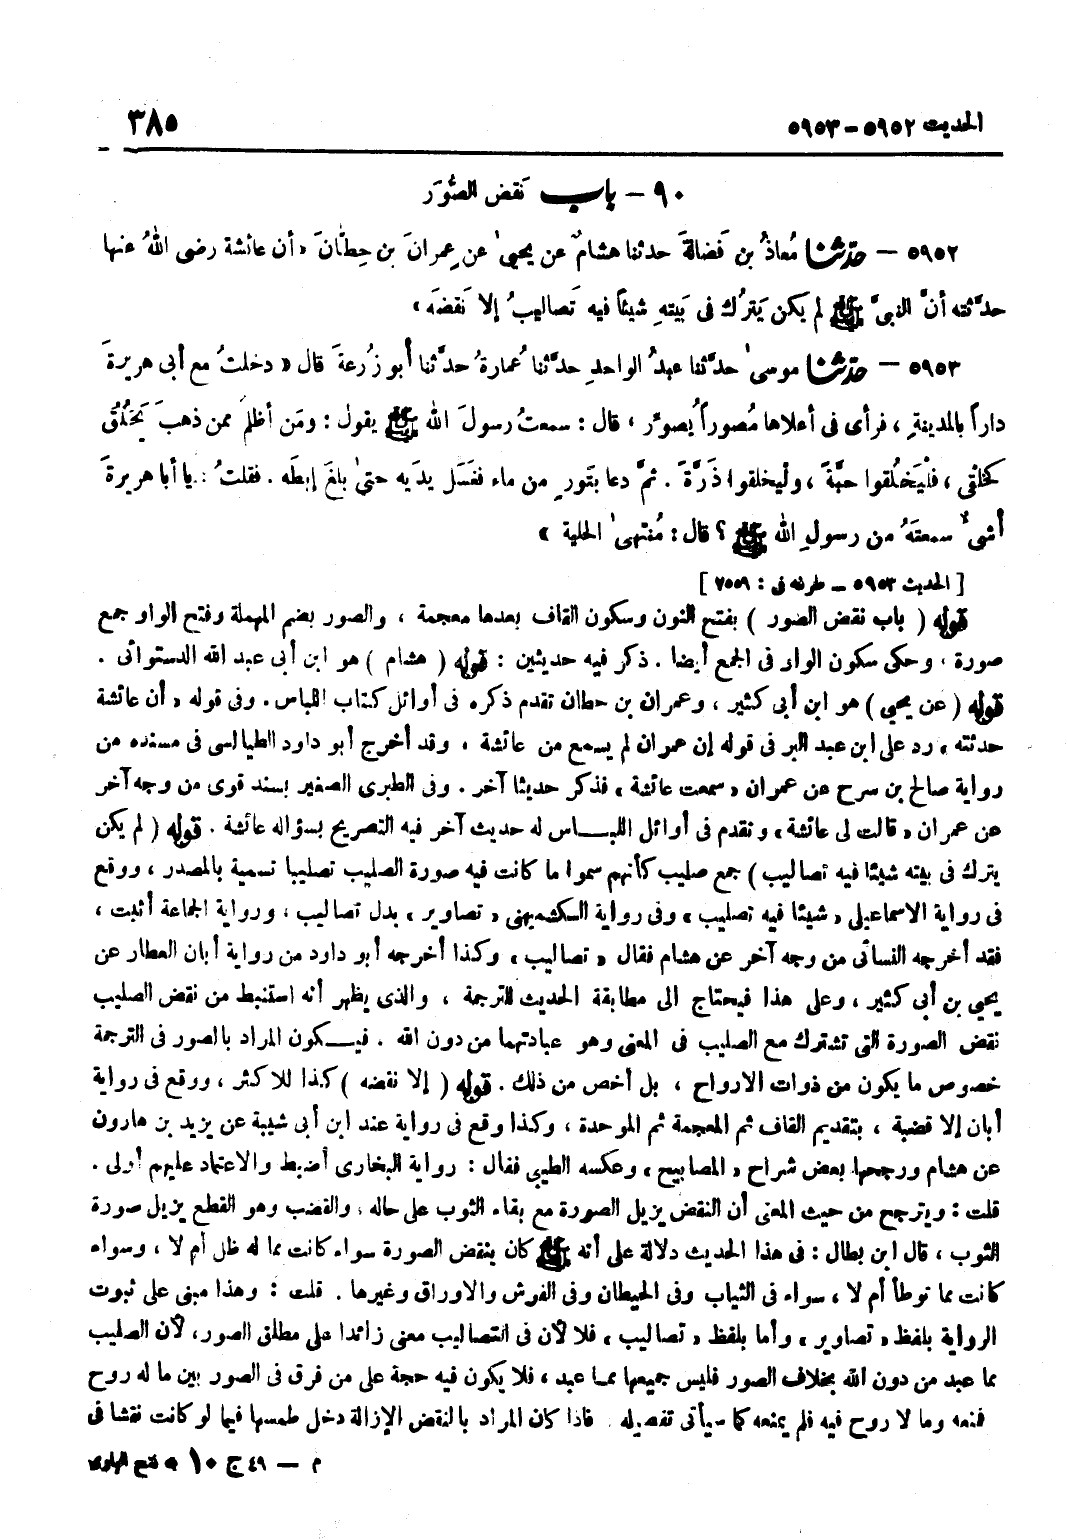 الحديث ٥٩٥٢ – ٥٩٥٣ ٣٨٥
٩٠ – باب نَقض الصُّوَر
٥٩٥٢ – حدّثنا مُعاذُ بن فَضالةَ حدثنا هشامٌ عن يحيىٰ عن عِمرانَ بن حِطّانَ « أن عائشة رضى اللهُ عنها
حدَّثته أنَّ النبىَّ ﷺ لم يكن يَترُك فى بَيتهِ شيئاً فيه تَصاليبُ إلا نَقضَه »
٥٩٥٣ – حدّثنا موسىٰ حدَّثنا عبدُ الواحدِ حدَّثنا عُمارةُ حدَّثنا أبو زُرعةَ قال « دخلتُ مع أبى هريرةَ
داراً بالمدينةِ ، فرأى فى أعلاها مُصوراً يُصوِّر ، قال : سمعتُ رسولَ الله ﷺ يقول : ومَن أظلمُ ممن ذهبَ يَخلُقُ
كخلْقى ، فلْيَخلُقوا حبَّةً ، ولْيخلقوا ذَرَّةً . ثمَّ دعا بتَورٍ من ماء فغَسل يدَيه حتىٰ بلغَ إبطَه . فقلتُ : يا أبا هريرةَ
أشىءٌ سمعتَهُ من رسولِ الله ﷺ ؟ قال : مُنتهىٰ الحلية »
[ الحديث ٥٩٥٣ – طرفه فى : ٧٥٥٩ ]
قوله ( باب نقض الصور ) بفتح النون وسكون القاف بعدها معجمة ، والصور بضم المهملة وفتح الواو جمع
صورة ، وحكى سكون الواو فى الجمع أيضا . ذكر فيه حديثين : قوله ( هشام ) هو ابن أبى عبد الله الدستوائى .
قوله ( عن يحيى ) هو ابن أبى كثير ، وعمران بن حطان تقدم ذكره فى أوائل كتاب اللباس . وفى قوله « أن عائشة
حدثته » رد على ابن عبد البر فى قوله إن عمران لم يسمع من عائشة ، وقد أخرج أبو داود الطيالسى فى مسنده من
رواية صالح بن سرح عن عمران « سمعت عائشة » فذكر حديثا آخر . وفى الطبرى الصغير بسند قوى من وجه آخر
عن عمران « قالت لى عائشة » وتقدم فى أوائل اللبـــاس له حديث آخر فيه التصريح بسؤاله عائشة . قوله ( لم يكن
يترك فى بيته شيئا فيه تصاليب ) جمع صليب كأنهم سموا ما كانت فيه صورة الصليب تصليبا تسمية بالمصدر ، ووقع
فى رواية الاسماعيلى « شيئا فيه تصليب » وفى رواية الكشميهنى « تصاوير » بدل تصاليب ، ورواية الجماعة أثبت ،
فقد أخرجه النسائى من وجه آخر عن هشام فقال « تصاليب » وكذا أخرجه أبو داود من رواية أبان العطار عن
يحيى بن أبى كثير ، وعلى هذا فيحتاج الى مطابقة الحديث للترجمة ، والذى يظهر أنه استنبط من نقض الصليب
نقض الصورة التى تشترك مع الصليب فى المعنى وهو عبادتهما من دون الله . فيـــكون المراد بالصور فى الترجمة
خصوص ما يكون من ذوات الارواح ، بل أخص من ذلك . قوله ( إلا نقضه ) كذا للاكثر ، ووقع فى رواية
أبان إلا قضبة ، بتقديم القاف ثم المعجمة ثم الموحدة ، وكذا وقع فى رواية عند ابن أبى شيبة عن يزيد بن هارون
عن هشام ورجحها بعض شراح « المصابيح » وعكسه الطيبى فقال : رواية البخارى أضبط والاعتماد عليهم أولى .
قلت : ويترجح من حيث المعنى أن النقض يزيل الصورة مع بقاء الثوب على حاله ، والقضب وهو القطع يزيل صورة
الثوب ، قال ابن بطال : فى هذا الحديث دلالة على أنه ﷺ كان ينقض الصورة سواء كانت مما له ظل أم لا ، وسواء
كانت مما توطأ أم لا ، سواء فى الثياب وفى الحيطان وفى الفرش والاوراق وغيرها . قلت : وهذا مبنى على ثبوت
الرواية بلفظ « تصاوير » وأما بلفظ « تصاليب » فلا لأن فى التصاليب معنى زائدا على مطلق الصور ، لأن الصليب
مما عبد من دون الله بخلاف الصور فليس جميعها ممـا عبد ، فلا يكون فيه حجة على من فرق فى الصور بين ما له روح
فمنعه وما لا روح فيه فلم يمنعه كما سيأتى تفصيله . فاذا كان المراد بالنقض الإزالة دخل طمسها فيما لو كانت نقشا فى
م – ٤٩ ج ١٠ * فتح البارى